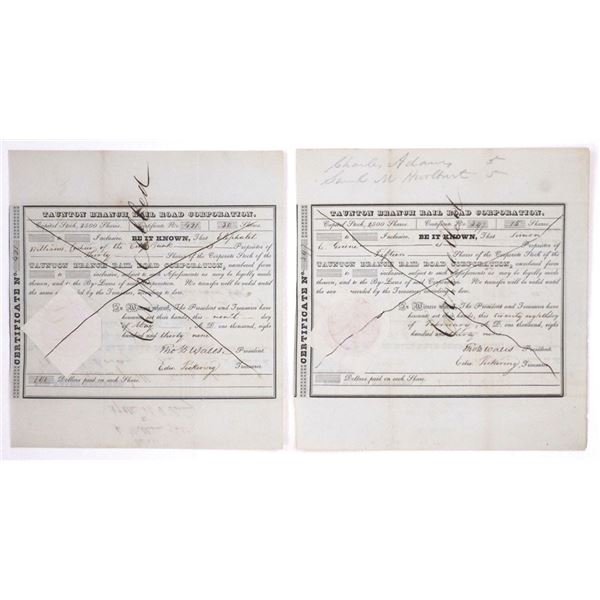 TAUNTON BRANCH RAIL ROAD CORPORATION.
Capital Stock, 2500 Shares. Certificate No. 421 30 Shares.
to Inclusive. BE IT KNOWN, That Eliphalet
Williams, Cashier of the Bank Proprietor of
thirty Shares of the Corporate Stock of the
TAUNTON BRANCH RAIL ROAD CORPORATION, numbered from
to inclusive, subject to such Assessments as may be legally made
thereon, and to the By-Laws of said Corporation. No transfer will be valid until
the same is recorded by the Treasurer, according to law.
In Witness whereof, The President and Treasurer have
hereunto set their hands, this ninth day
of May A. D. one thousand, eight
hundred and thirty nine
Tho B Wales President.
Edw. Pickering Treasurer.
101 Dollars paid on each Share.
CERTIFICATE No. 421
Cancelled
Charles Adams 5
Saml M Hurlburt 5
TAUNTON BRANCH RAIL ROAD CORPORATION.
Capital Stock, 2500 Shares. Certificate No. 15 Shares.
to Inclusive. BE IT KNOWN, That Simon
Greene Proprietor of
fifteen Shares of the Corporate Stock of the
TAUNTON BRANCH RAIL ROAD CORPORATION, numbered from
to inclusive, subject to such Assessments as may be legally made
thereon, and to the By-Laws of said Corporation. No transfer will be valid until
the same is recorded by the Treasurer, according to law.
In Witness whereof, The President and Treasurer have
hereunto set their hands, this twenty eighth day
of February A. D. one thousand, eight
hundred and thirty nine
Tho B Wales President.
Edw. Pickering Treasurer.
Dollars paid on each Share.
CERTIFICATE No.